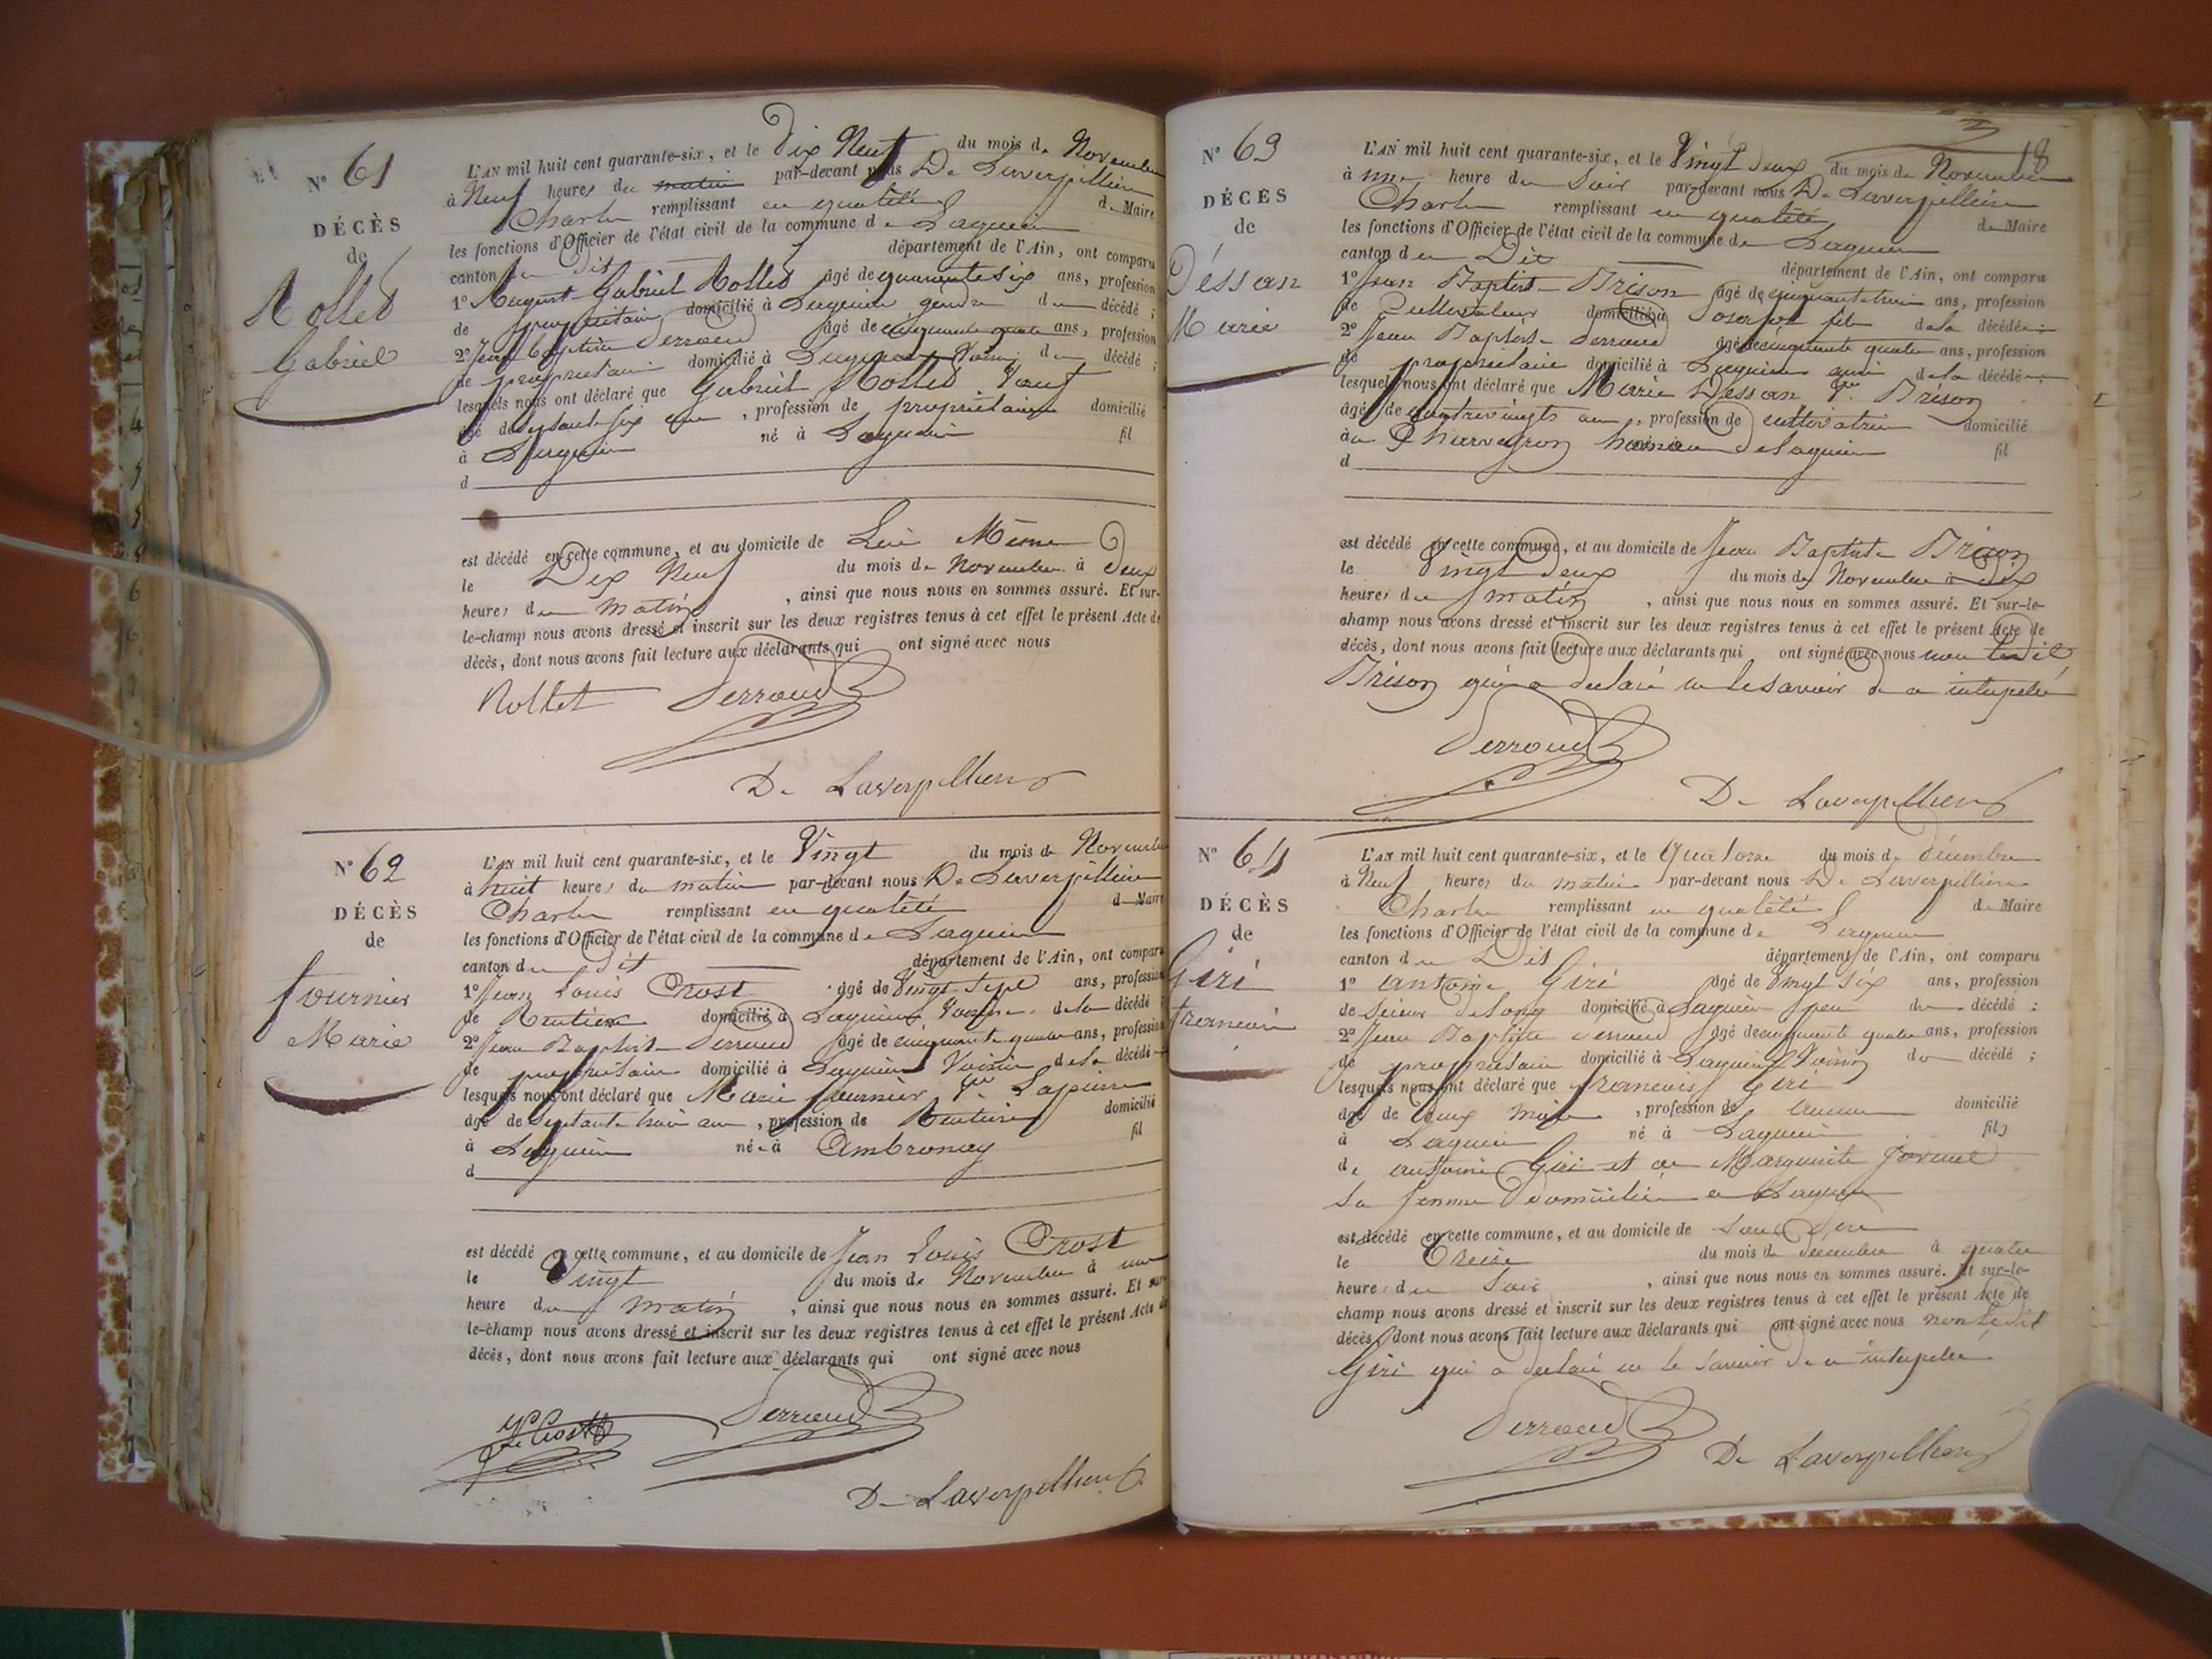 N° 61
DÉCÈS
de
Rollet
Gabriel
L'AN mil huit cent quarante-six, et le Dix Neuf du mois de Novembre
à Neuf heures du matin par-devant nous De Laverpillière
Charles remplissant en qualité de Maire
les fonctions d'Officier de l'état civil de la commune de Lagnieu
canton du dit département de l'Ain, ont comparu
1° August Gabriel Rollet âgé de quarante six ans, profession
de propriétaire domicilié à Lagnieu gendre du décédé ;
2° Jean Baptiste Serroud âgé de cinquante quatre ans, profession
de propriétaire domicilié à Lagnieu Voisin du décédé ;
lesquels nous ont déclaré que Gabriel Rollet Veuf
âgé de septante six ans , profession de propriétaire domicilié
à Lagnieu né à Lagnieu fil
d
est décédé en cette commune, et au domicile de Lui Même
le Dix Neuf du mois de Novembre à deux
heures du matin , ainsi que nous nous en sommes assuré. Et sur-
le-champ nous avons dressé et inscrit sur les deux registres tenus à cet effet le présent Acte de
décès, dont nous avons fait lecture aux déclarants qui ont signé avec nous
Rollet Serroud
De Laverpilliere
N° 62
DÉCÈS
de
fournier
Marie
L'AN mil huit cent quarante-six, et le Vingt du mois de Novembre
à huit heures du matin par-devant nous De Laverpillière
Charles remplissant en qualité de Maire
les fonctions d'Officier de l'état civil de la commune de Lagnieu
canton du dit département de l'Ain, ont comparu
1° Jean Louis Crost âgé de Vingt Sept ans, profession
de Rentier domicilié à Lagnieu Voisin de la décédé ;
2° Jean Baptiste Serroud âgé de cinquante quatre ans, profession
de propriétaire domicilié à Lagnieu Voisin de la décédé
lesquels nous ont déclaré que Marie fournier Ve Lapierre
âgé de septante trois ans , profession de Rentière domicilié
à Lagnieu née à Ambronay fil
d
est décédé en cette commune, et au domicile de Jean Louis Crost
le Vingt du mois de Novembre à une
heure du matin , ainsi que nous nous en sommes assuré. Et sur-
le-champ nous avons dressé et inscrit sur les deux registres tenus à cet effet le présent Acte de
décès, dont nous avons fait lecture aux déclarants qui ont signé avec nous
Crost Serroud
De Laverpilliere
18
N° 63
DÉCÈS
de
Dessan
Marie
L'AN mil huit cent quarante-six, et le Vingt deux du mois de Novembre
à une heure du Soir par-devant nous De Laverpillière
Charles remplissant en qualité de Maire
les fonctions d'Officier de l'état civil de la commune de Lagnieu
canton du Dit département de l'Ain, ont comparu
1° Jean Baptiste Brison âgé de cinquante trois ans, profession
de Cultivateur domicilié à fils de la décédée ;
2° Jean Baptiste Serroud âgé de cinquante quatre ans, profession
de propriétaire domicilié à Lagnieu ami de la décédée ;
lesquels nous ont déclaré que Marie Dessan Ve Brison
âgé de quatrevingts ans , profession de cultivatrice domicilié
à Charveyron hameau de Lagnieu fil
d
est décédé en cette commune, et au domicile de Jean Baptiste Brison
le Vingt deux du mois de Novembre à dix
heures du matin , ainsi que nous nous en sommes assuré. Et sur-le-
champ nous avons dressé et inscrit sur les deux registres tenus à cet effet le présent Acte de
décès, dont nous avons fait lecture aux déclarants qui ont signé avec nous non ledit
Brison qui a declaré ne le savoir de ce interpelé
Serroud
De Laverpilliere
N° 64
DÉCÈS
de
Giri
L'AN mil huit cent quarante-six, et le Quatorze du mois de décembre
à Neuf heures du matin par-devant nous De Laverpillière
Charles remplissant en qualité de Maire
les fonctions d'Officier de l'état civil de la commune de Lagnieu
canton du Dit département de l'Ain, ont comparu
1° antoine Giri âgé de Vingt Six ans, profession
de Scieur de Long domicilié à Lagnieu père du décédé ;
2° Jean Baptiste Serroud âgé de cinquante quatre ans, profession
de propriétaire domicilié à Lagnieu Voisin du décédé ;
lesquels nous ont déclaré que Giri
âgé de deux mois , profession de aucune domicilié
à Lagnieu né à Lagnieu fils
de antoine Giri et de Marguerite
Sa femme domiciliée a Lagnieu
est décédé en cette commune, et au domicile de Son Père
le Treize du mois de decembre à quatre
heures du Soir , ainsi que nous nous en sommes assuré. Et sur-le-
champ nous avons dressé et inscrit sur les deux registres tenus à cet effet le présent Acte de
décès, dont nous avons fait lecture aux déclarants qui ont signé avec nous non ledit
Giri qui a declaré ne le savoir de ce interpelé
Serroud
De Laverpilliere